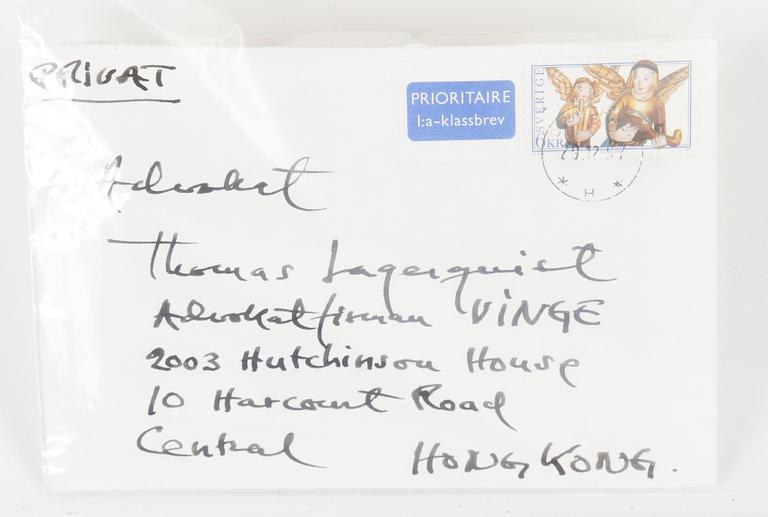 PRIVAT
PRIORITAIRE
1:a-klassbrev
SVERIGE
6KR
H
Advokat
Thomas Lagerquist
Advokatfirman VINGE
2003 Hutchinson House
10 Harcourt Road
Central HONG KONG.